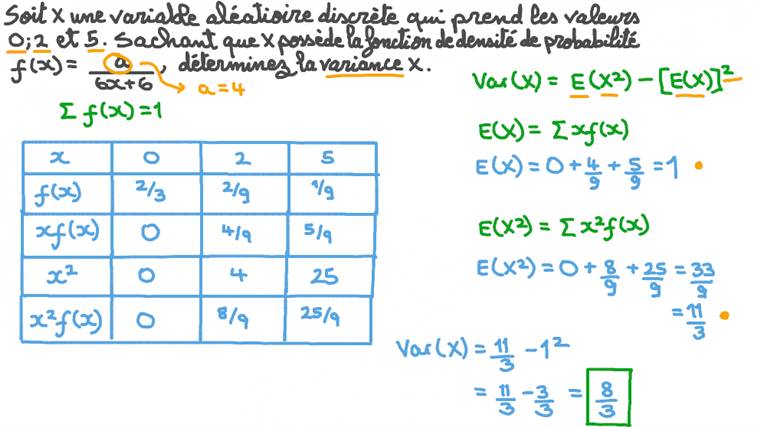 Soit X une variable aléatioire discrète qui prend les valeurs
0; 2 et 5. Sachant que X possède la fonction de densité de probabilité
f(x) = a/(6x+6), déterminez la variance X.
a = 4
Σ f(x) = 1
x 0 2 5
f(x) 2/3 2/9 1/9
xf(x) 0 4/9 5/9
x² 0 4 25
x²f(x) 0 8/9 25/9
Var(X) = E(X²) - [E(X)]²
E(X) = Σ xf(x)
E(X) = 0 + 4/9 + 5/9 = 1
E(X²) = Σ x²f(x)
E(X²) = 0 + 8/9 + 25/9 = 33/9
= 11/3
Var(X) = 11/3 - 1²
= 11/3 - 3/3 = 8/3